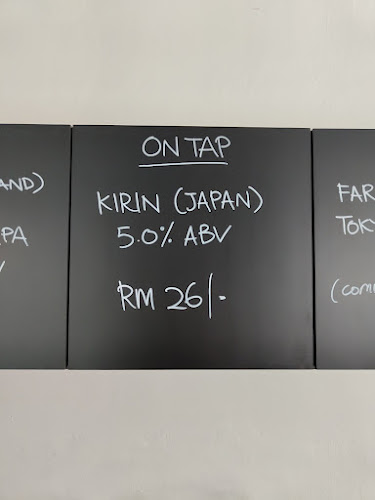 AND)
PA
ON TAP
KIRIN (JAPAN)
5.0% ABV
RM 26/-
FAR
TOK
(com